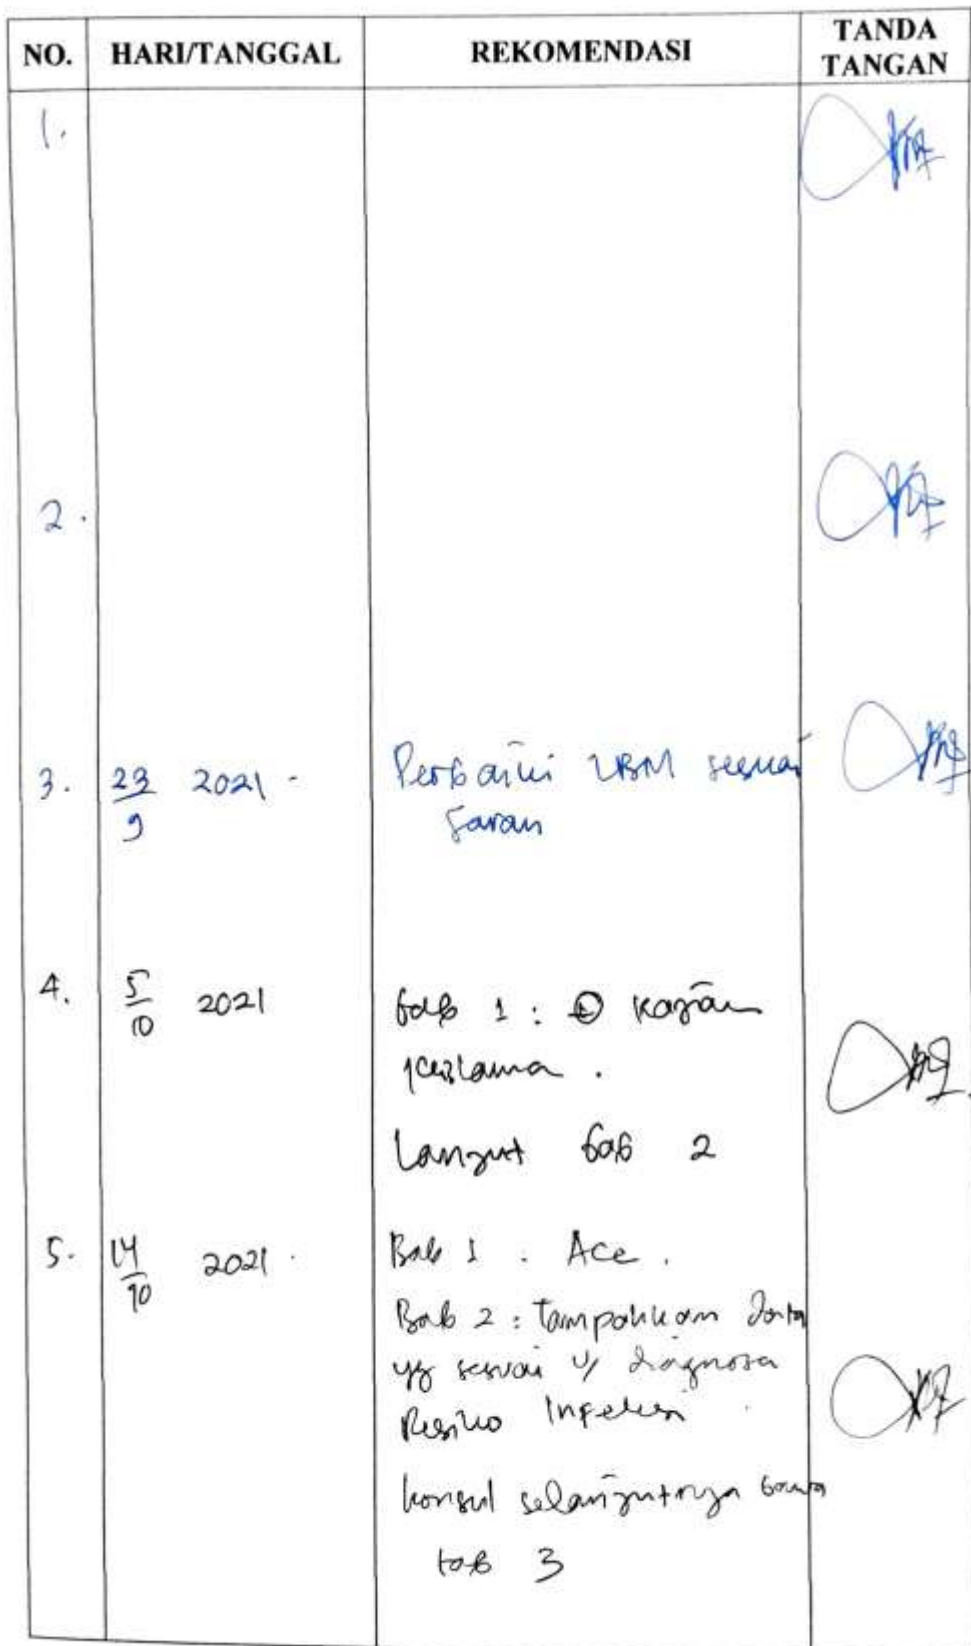 NO. HARI/TANGGAL REKOMENDASI TANDA TANGAN
1.
2.
3. 23/9 2021 Perbaiki LBM sesuai
saran
4. 5/10 2021 bab 1: kajian
keislaman.
Lanjut bab 2
5. 14/10 2021 Bab 1. Ace.
Bab 2: tampakkan data
yg sesuai u/ diagnosa
Resiko Infeksi
konsul selanjutnya bawa
bab 3